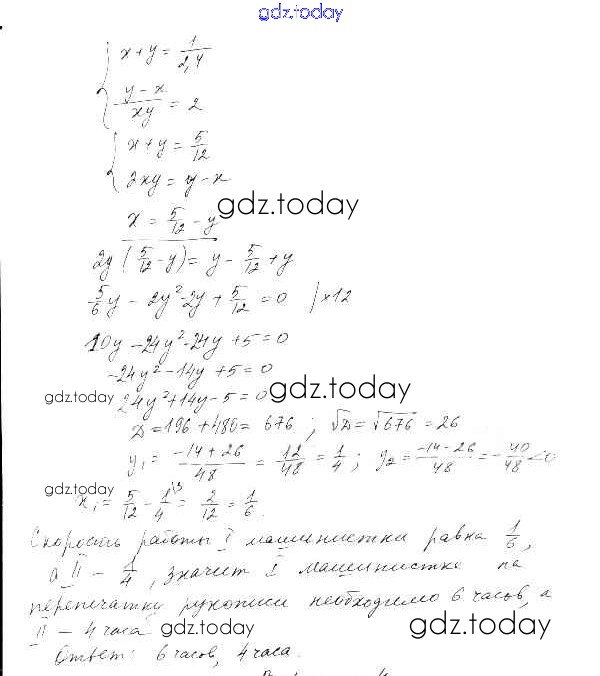 gdz.today
x + y = 1/2,4
y - x / xy = 2
x + y = 5/12
2xy = y - x
x = 5/12 - y
gdz.today
2y (5/12 - y) = y - 5/12 + y
5/6 y - 2y² - 2y + 5/12 = 0 | ×12
10y - 24y² - 24y + 5 = 0
-24y² - 14y + 5 = 0
gdz.today
24y² + 14y - 5 = 0
gdz.today
D = 196 + 480 = 676 ; √D = √676 = 26
y₁ = -14 + 26 / 48 = 12/48 = 1/4 ; y₂ = -14 - 26 / 48 = -40/48 < 0
gdz.today
x₁ = 5/12 - 1/4 \3 = 2/12 = 1/6
Скорость работы I машинистки равна 1/6,
а II - 1/4, значит I машинистке на
перепечатку рукописи необходимо 6 часов, а
II - 4 часа
gdz.today
gdz.today
Ответ: 6 часов, 4 часа.